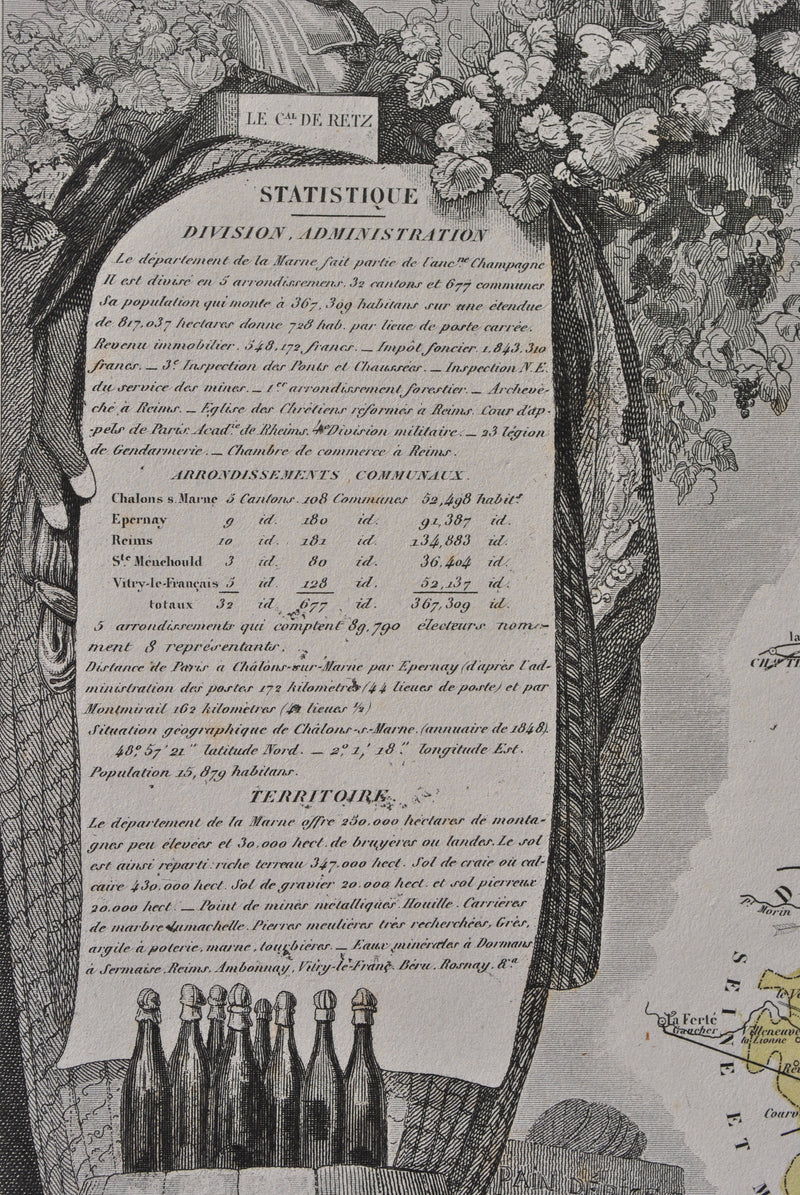 LE C.AL DE RETZ
STATISTIQUE
DIVISION, ADMINISTRATION
Le département de la Marne fait partie de l'anc.ne Champagne
Il est divisé en 5 arrondissemens, 32 cantons et 677 communes
Sa population qui monte à 367,309 habitans sur une étendue
de 817,037 hectares donne 728 hab. par lieue de poste carrée.
Revenu immobilier. 548,172 francs. — Impôt foncier. 1.843,310
francs. — 3.e Inspection des Ponts et Chaussées. — Inspection N.E.
du service des mines. — 1.er arrondissement forestier. — Archevê-
ché à Reims. — Eglise des Chrétiens réformés à Reims. Cour d'ap-
pels de Paris. Acad.ie de Rheims. Division militaire. — 23 légion
de Gendarmerie. — Chambre de commerce à Reims.
ARRONDISSEMENTS COMMUNAUX.
Chalons s. Marne 5 Cantons. 108 Communes 52,498 habit.s
Epernay 9 id. 180 id. 91,387 id.
Reims 10 id. 181 id. 134,883 id.
S.te Ménehould 3 id. 80 id. 36,404 id.
Vitry-le-Français 5 id. 128 id. 52,137 id.
totaux 32 id. 677 id. 367,309 id.
5 arrondissements qui comptent 89,790 électeurs nom-
ment 8 représentants.
Distance de Paris à Châlons-sur-Marne par Epernay (d'après l'ad-
ministration des postes 172 kilomètres (44 lieues de poste) et par
Montmirail 162 kilomètres (41 lieues ½)
Situation géographique de Châlons-s-Marne. (annuaire de 1848).
48.° 57' 21" latitude Nord. — 2.° 1,' 18." longitude Est.
Population 15,879 habitans.
TERRITOIRE.
Le département de la Marne offre 250.000 hectares de monta-
gnes peu élevées et 30.000 hect. de bruyères ou landes. Le sol
est ainsi réparti: riche terreau 347.000 hect. Sol de craie ou cal-
caire 430.000 hect. Sol de gravier 20.000 hect. et sol pierreux
20.000 hect. — Point de mines métalliques. Houille. Carrières
de marbre lumachelle. Pierres meulières très recherchées, Grès,
argile à poterie, marne, tourbières. — Eaux minérales à Dormans
à Sermaise, Reims. Ambonnay, Vitry-le-Franç. Béru. Rosnay, &.a
Morin
SEINE ET M
la Ferté
Gaucher
Villeneuve
la Lionne
PAIN D'EPICE